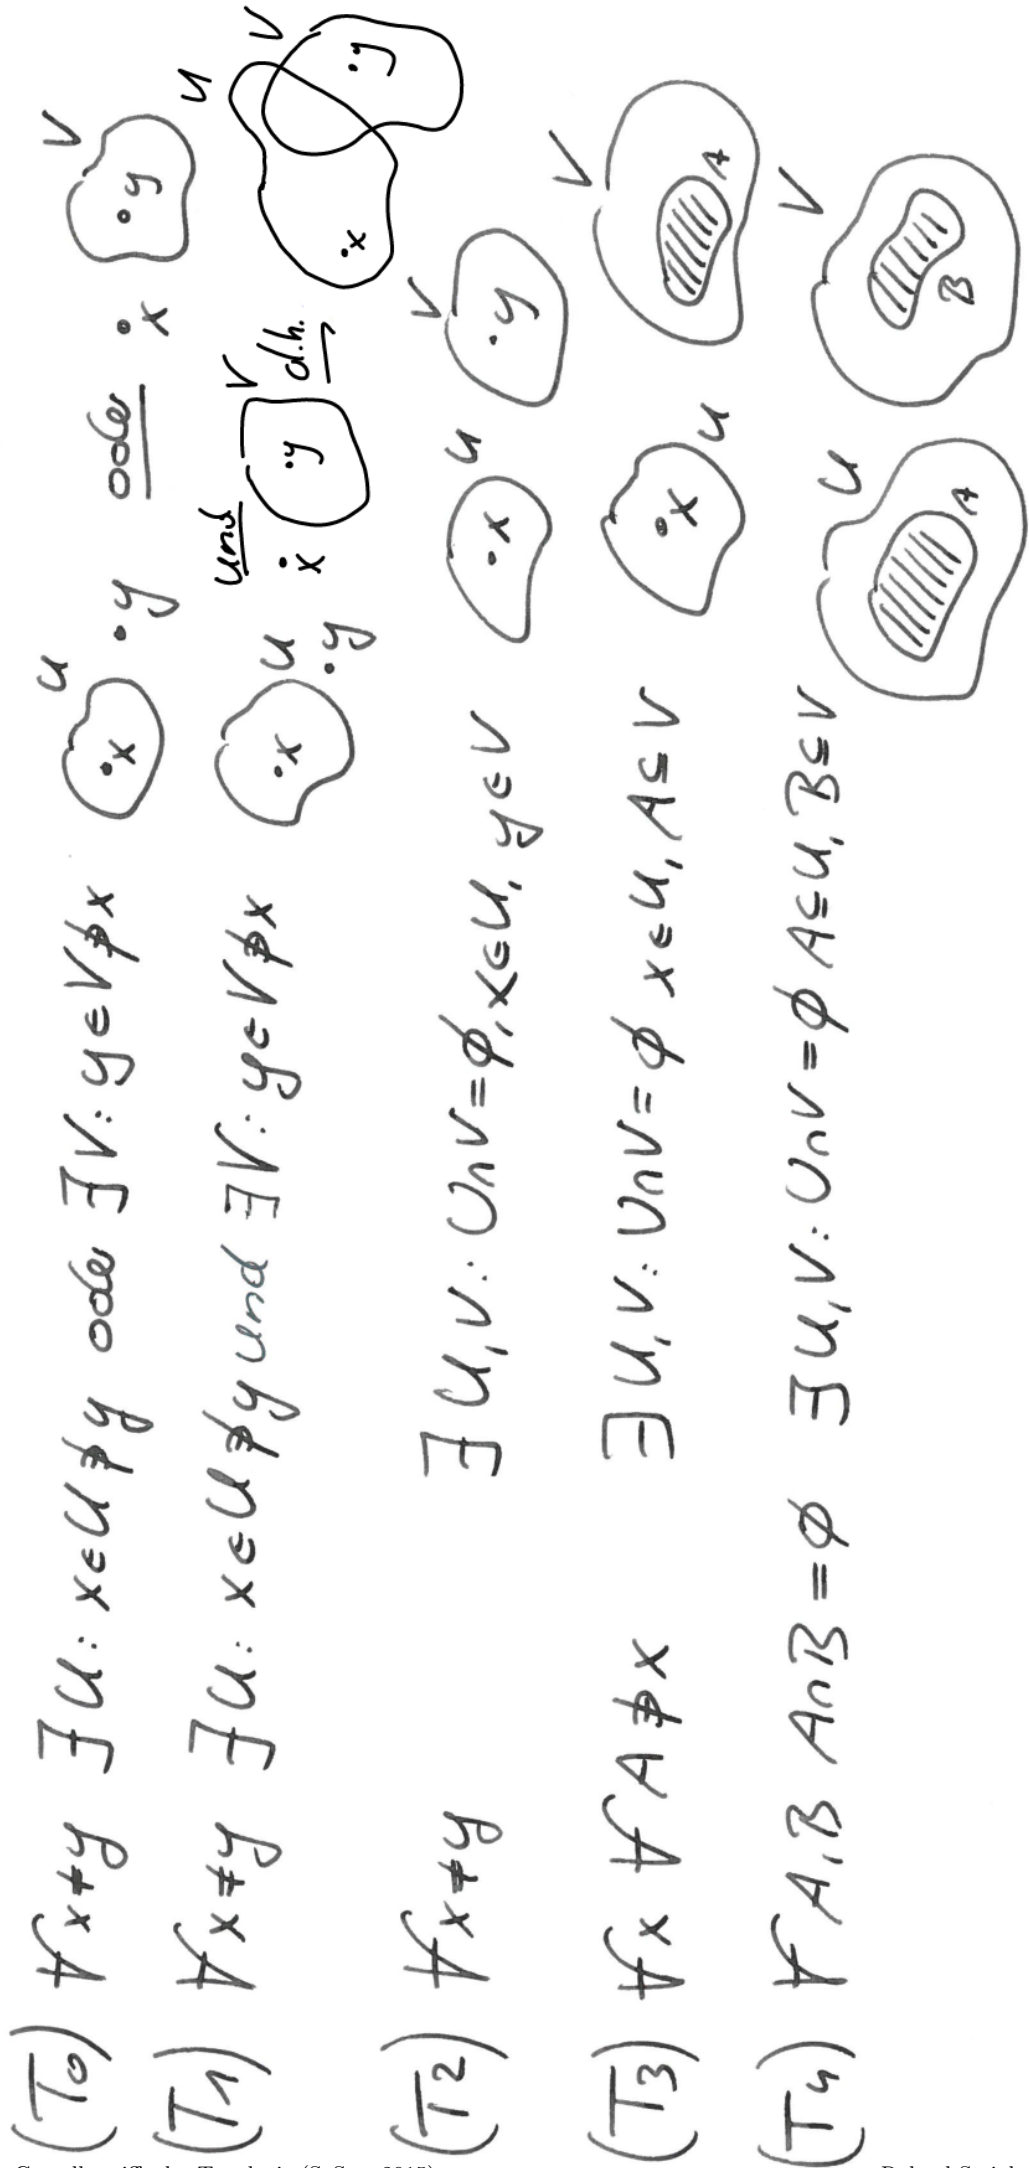 (T0) ∀ x≠y ∃ U: x∈U∌y oder ∃ V: y∈V∌x
U x y oder x V y
(T1) ∀ x≠y ∃ U: x∈U∌y und ∃ V: y∈V∌x
U x y und x V y d.h. U x V y
(T2) ∀ x≠y ∃ U, V: U∩V=∅, x∈U, y∈V
U x V y
(T3) ∀ x ∀ A∌x ∃ U, V: U∩V=∅ x∈U, A⊆V
x U V A
(T4) ∀ A, B A∩B=∅ ∃ U, V: U∩V=∅ A⊆U, B⊆V
U A V B